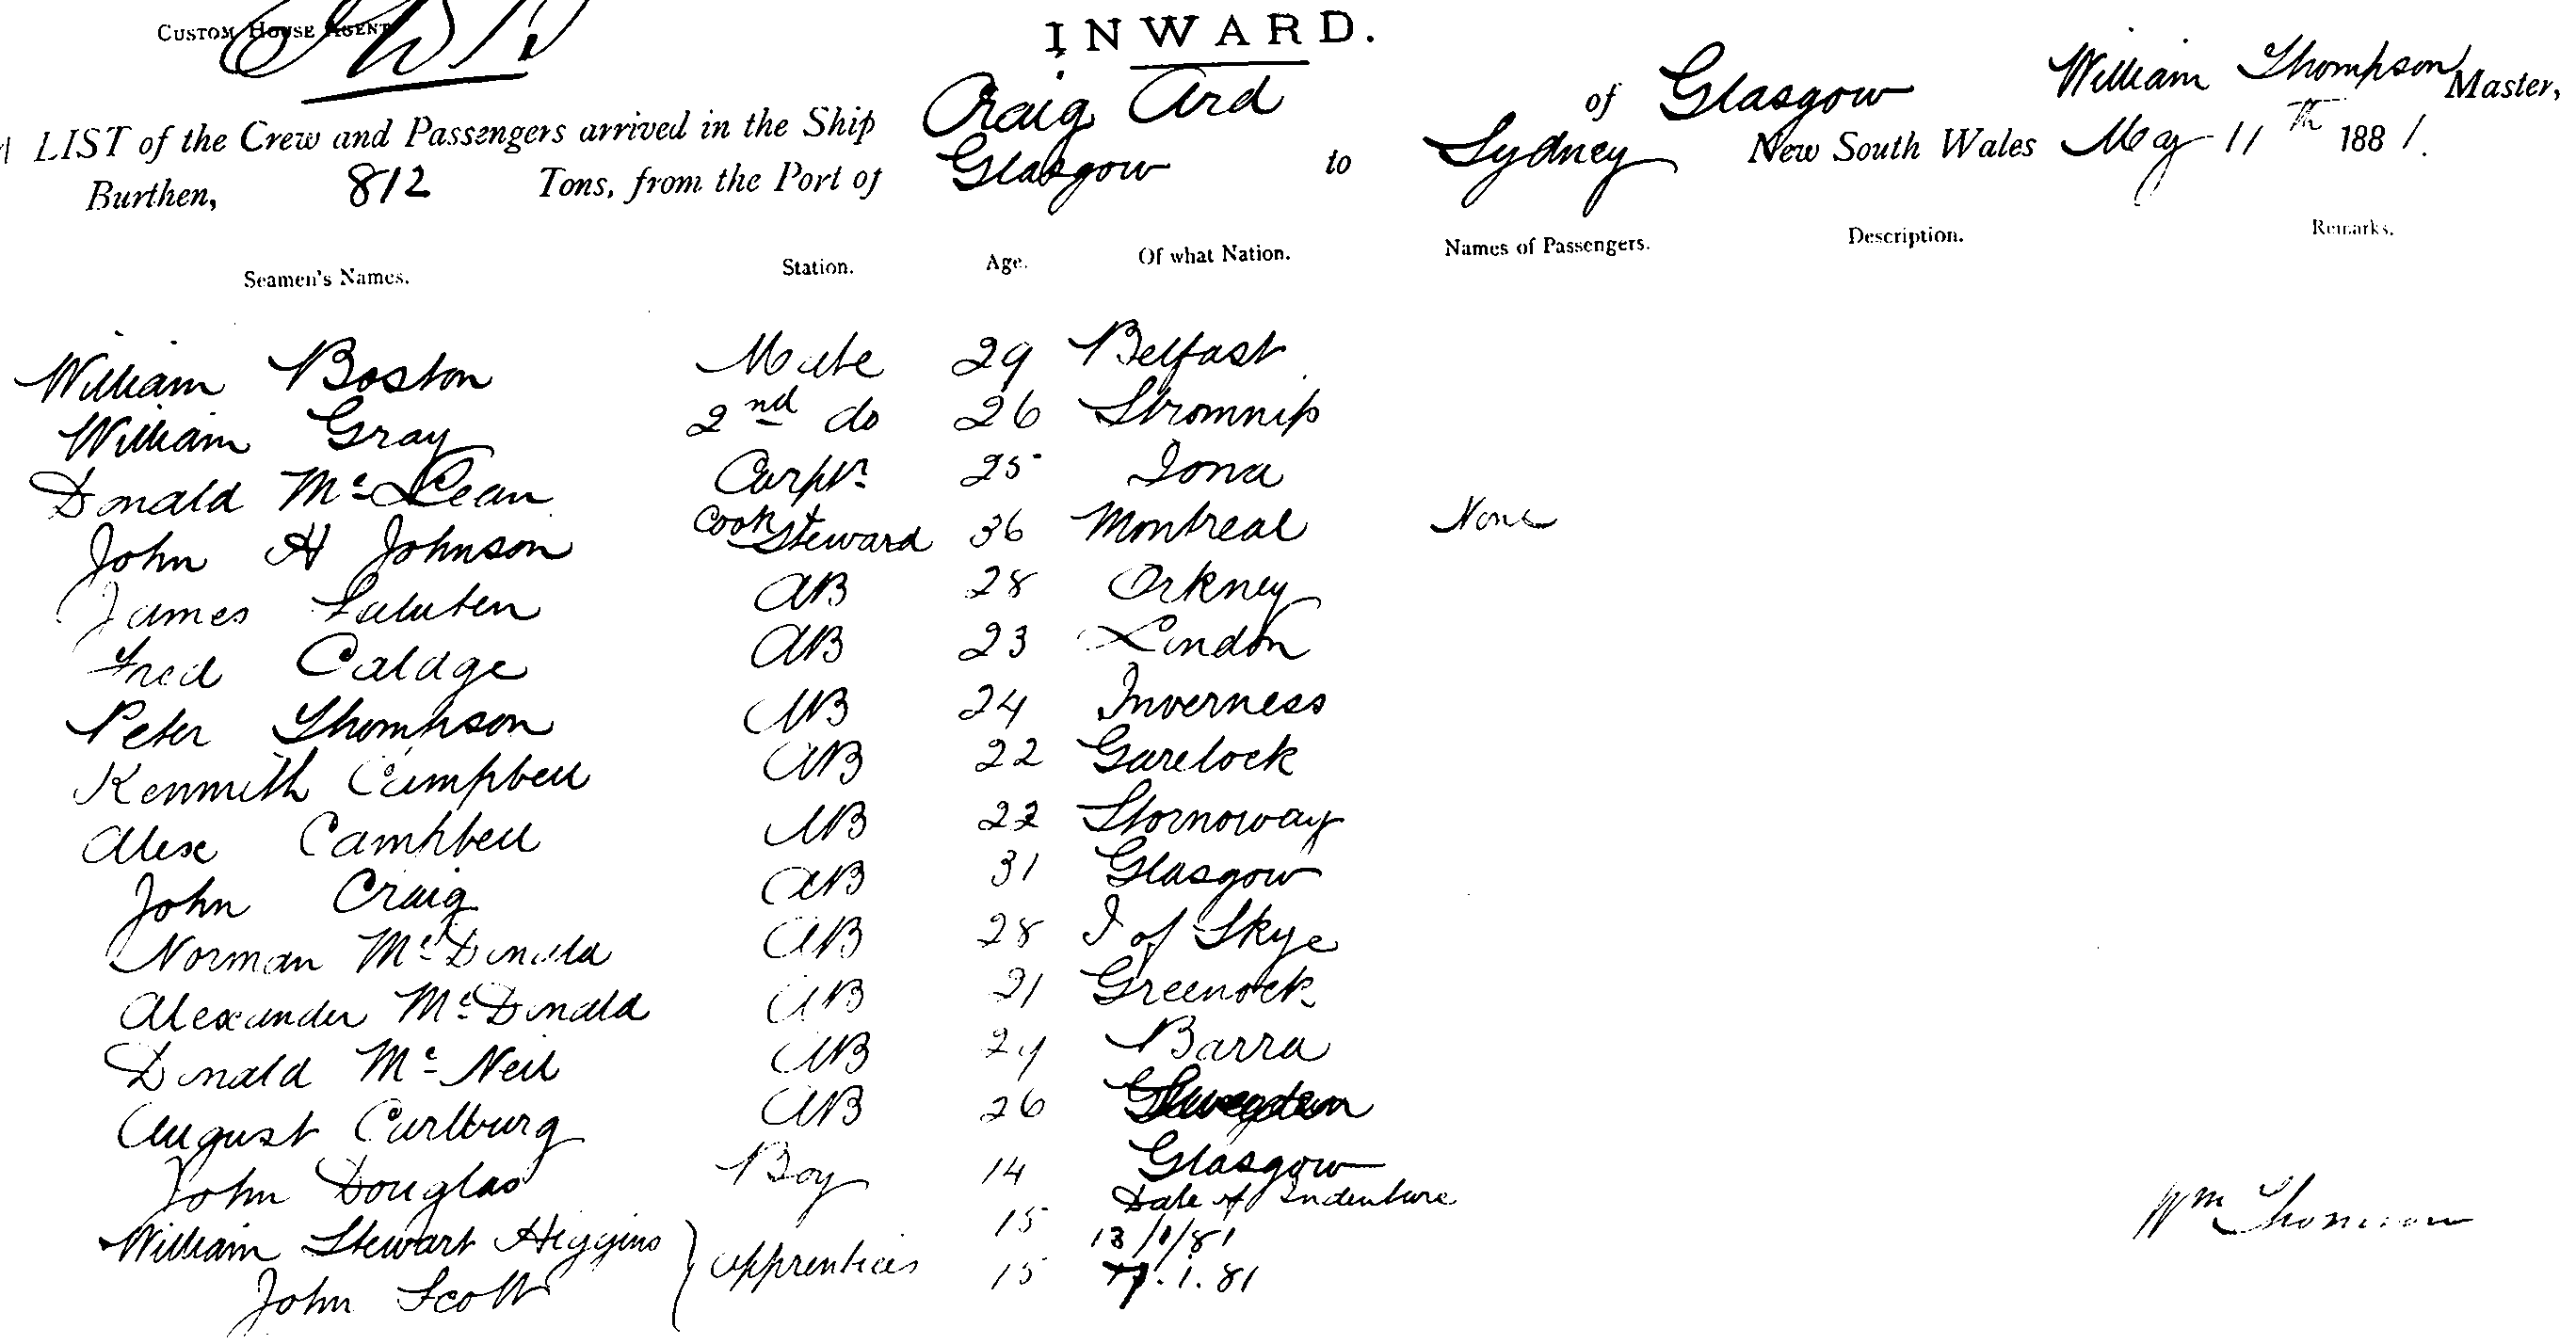 CUSTOM HOUSE AGENT
INWARD.
A LIST of the Crew and Passengers arrived in the Ship Craig Ard of Glasgow William Thompson Master,
Burthen, 812 Tons, from the Port of Glasgow to Sydney New South Wales May 11th 1881.
Seamen's Names. Station. Age. Of what Nation. Names of Passengers. Description. Remarks.
William Boston Mate 29 Belfast
William Gray 2nd do 26
Donald McLean Carptr 25 Iona
John H Johnson Cook Steward 36 Montreal None
James 28 AB Orkney
Fred Caldge AB 23 London
Peter Thompson AB 24 Inverness
Kenmith Campbell AB 22 Garelock
Alex Campbell AB 22 Stornoway
John Craig AB 31 Glasgow
Norman McDonald AB 28 I of Skye
Alexander McDonald AB 21 Greenock
Donald McNeil AB 24 Barra
August Carlburg AB 26
John Douglas Boy 14 Glasgow
Date of Indenture
William Stewart Higgins 15 13/1/81
apprentices
John Scott 15 .1.81
Wm Thompson